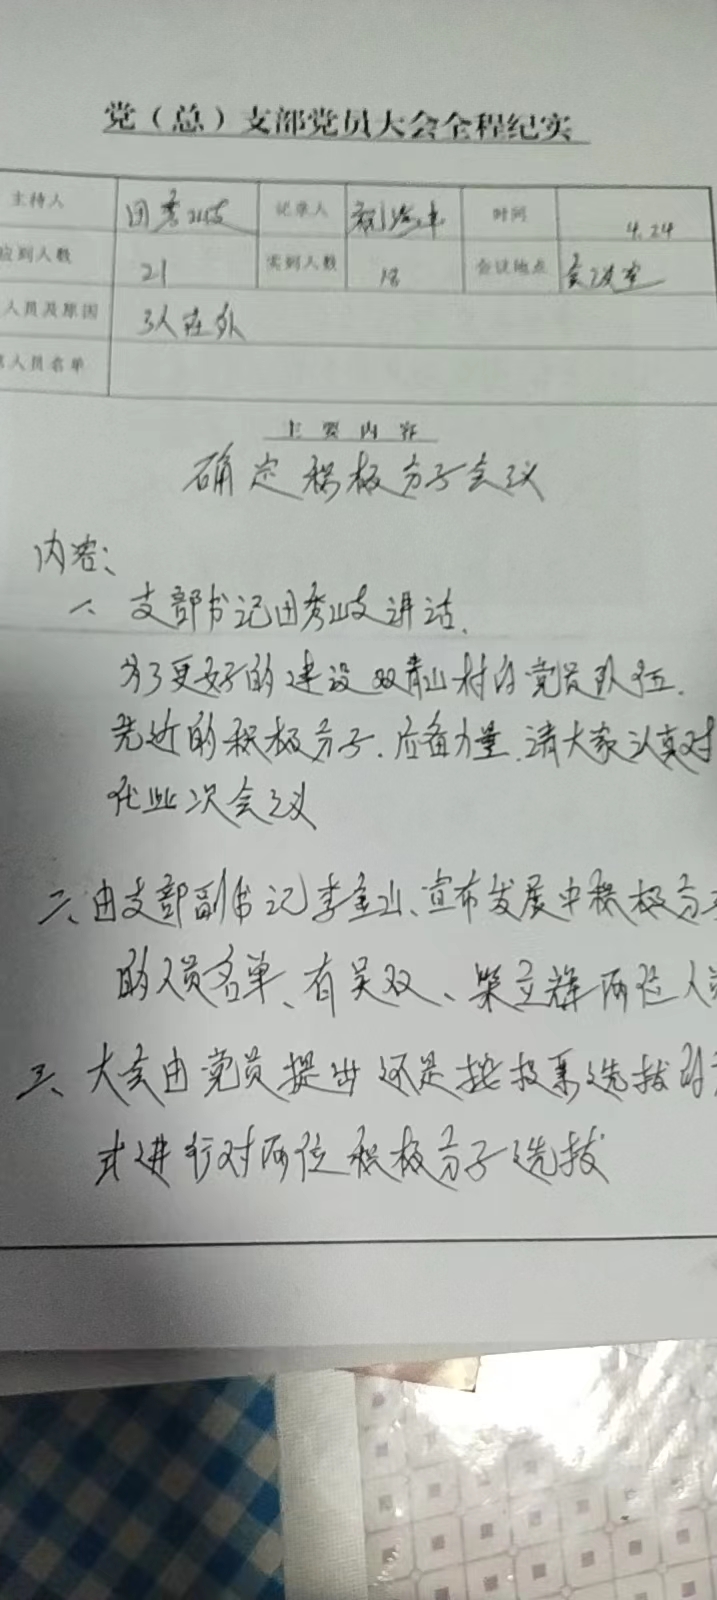 党（总）支部党员大会全程纪实
主持人 田秀岐 记录人 时间 4.24
应到人数 21 实到人数 18 会议地点 会议室
人员及原因 3人在外
人员名单
主要内容
确定积极分子会议
内容：
一、支部书记田秀岐讲话.
为了更好的建设双青山村的党员队伍.
先近的积极分子.后备力量.请大家认真对
代此次会议
二、由支部副书记李金山、宣布发展中积极分子
的人员名单、有吴双、梁立辉两位人员
三、大会由党员提出还是按投票选拔的方
式进行对两位积极分子选拔